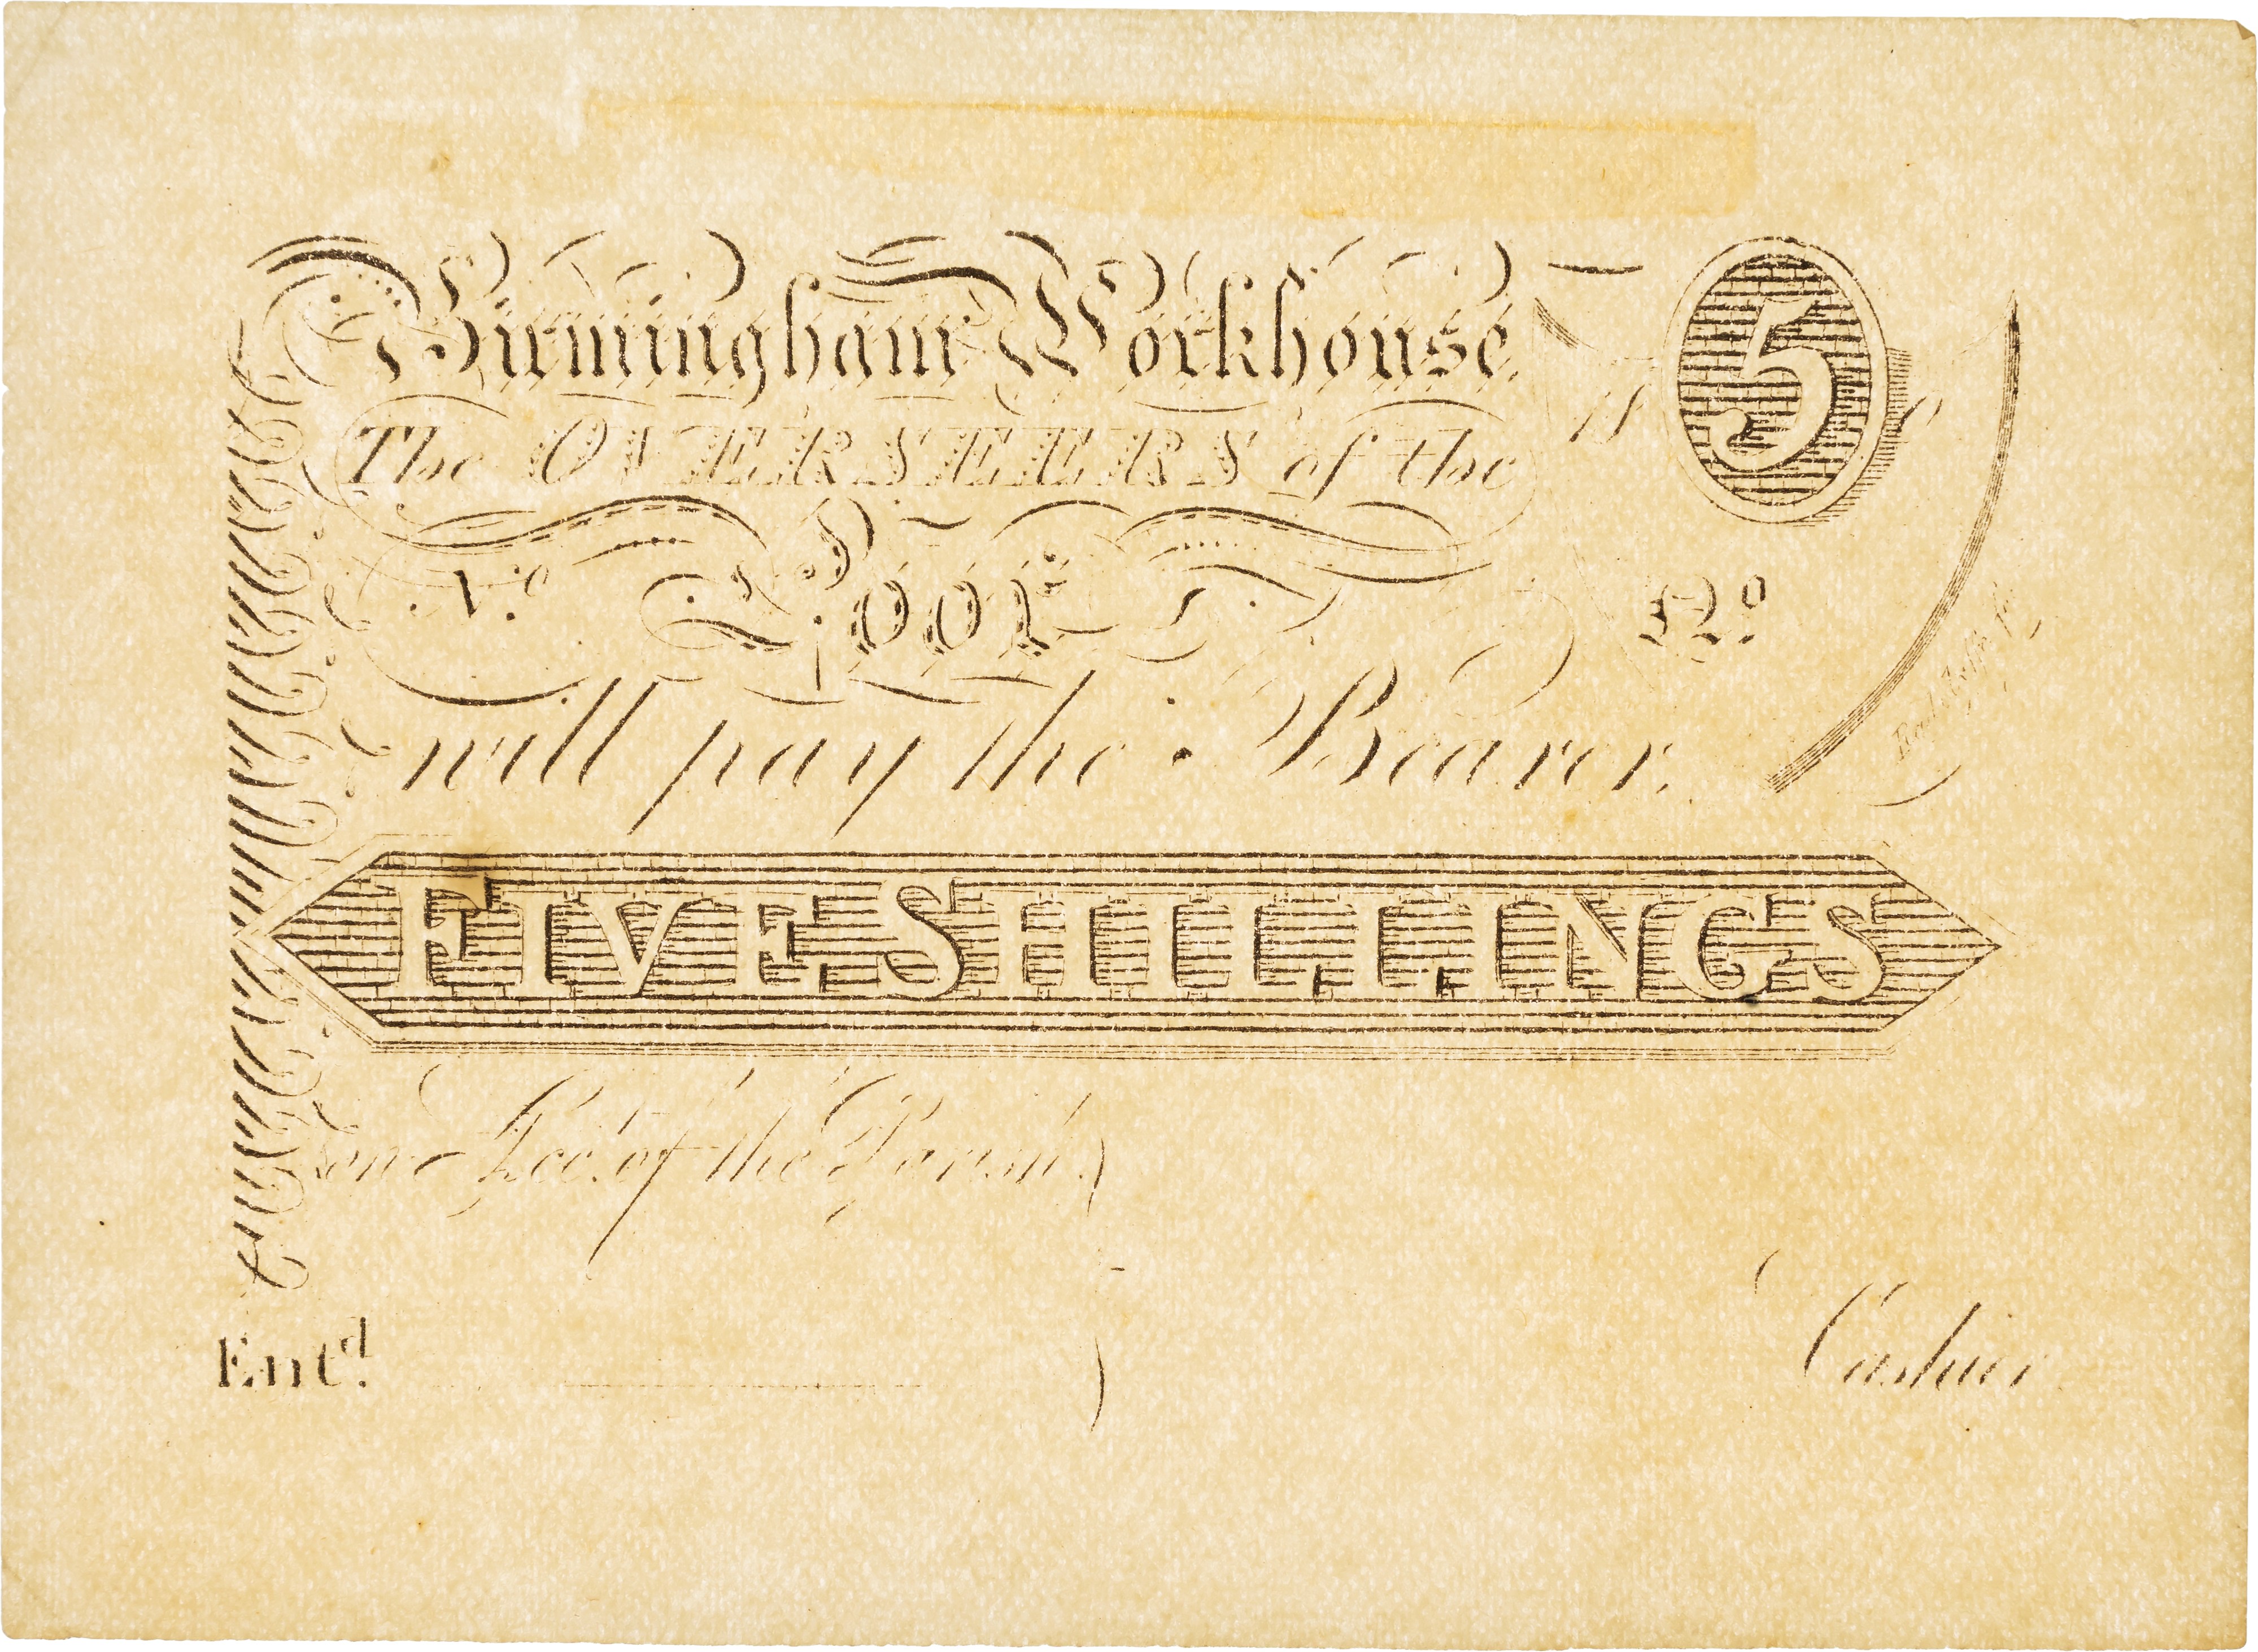 Birmingham Workhouse
5
The OVERSEERS of the
No Poor No
will pay the Bearer
FIVE SHILLINGS
on Acct. of the Parish.
Entd.
Cashier